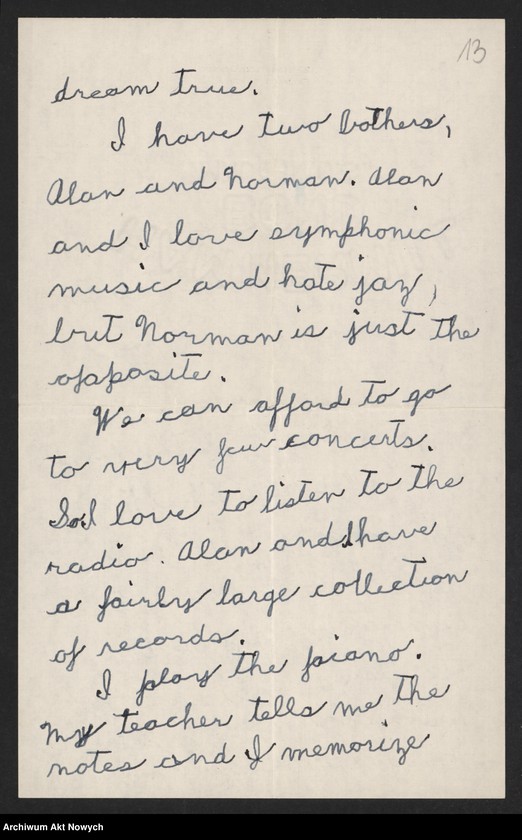 13
dream true.
I have two bothers,
Alan and Norman. Alan
and I love symphonic
music and hate jaz,
but Norman is just the
opposite.
We can afford to go
to very few concerts.
So I love to listen to the
radio. Alan and I have
a fairly large collection
of records.
I play the piano.
My teacher tells me the
notes and I memorize
Archiwum Akt Nowych